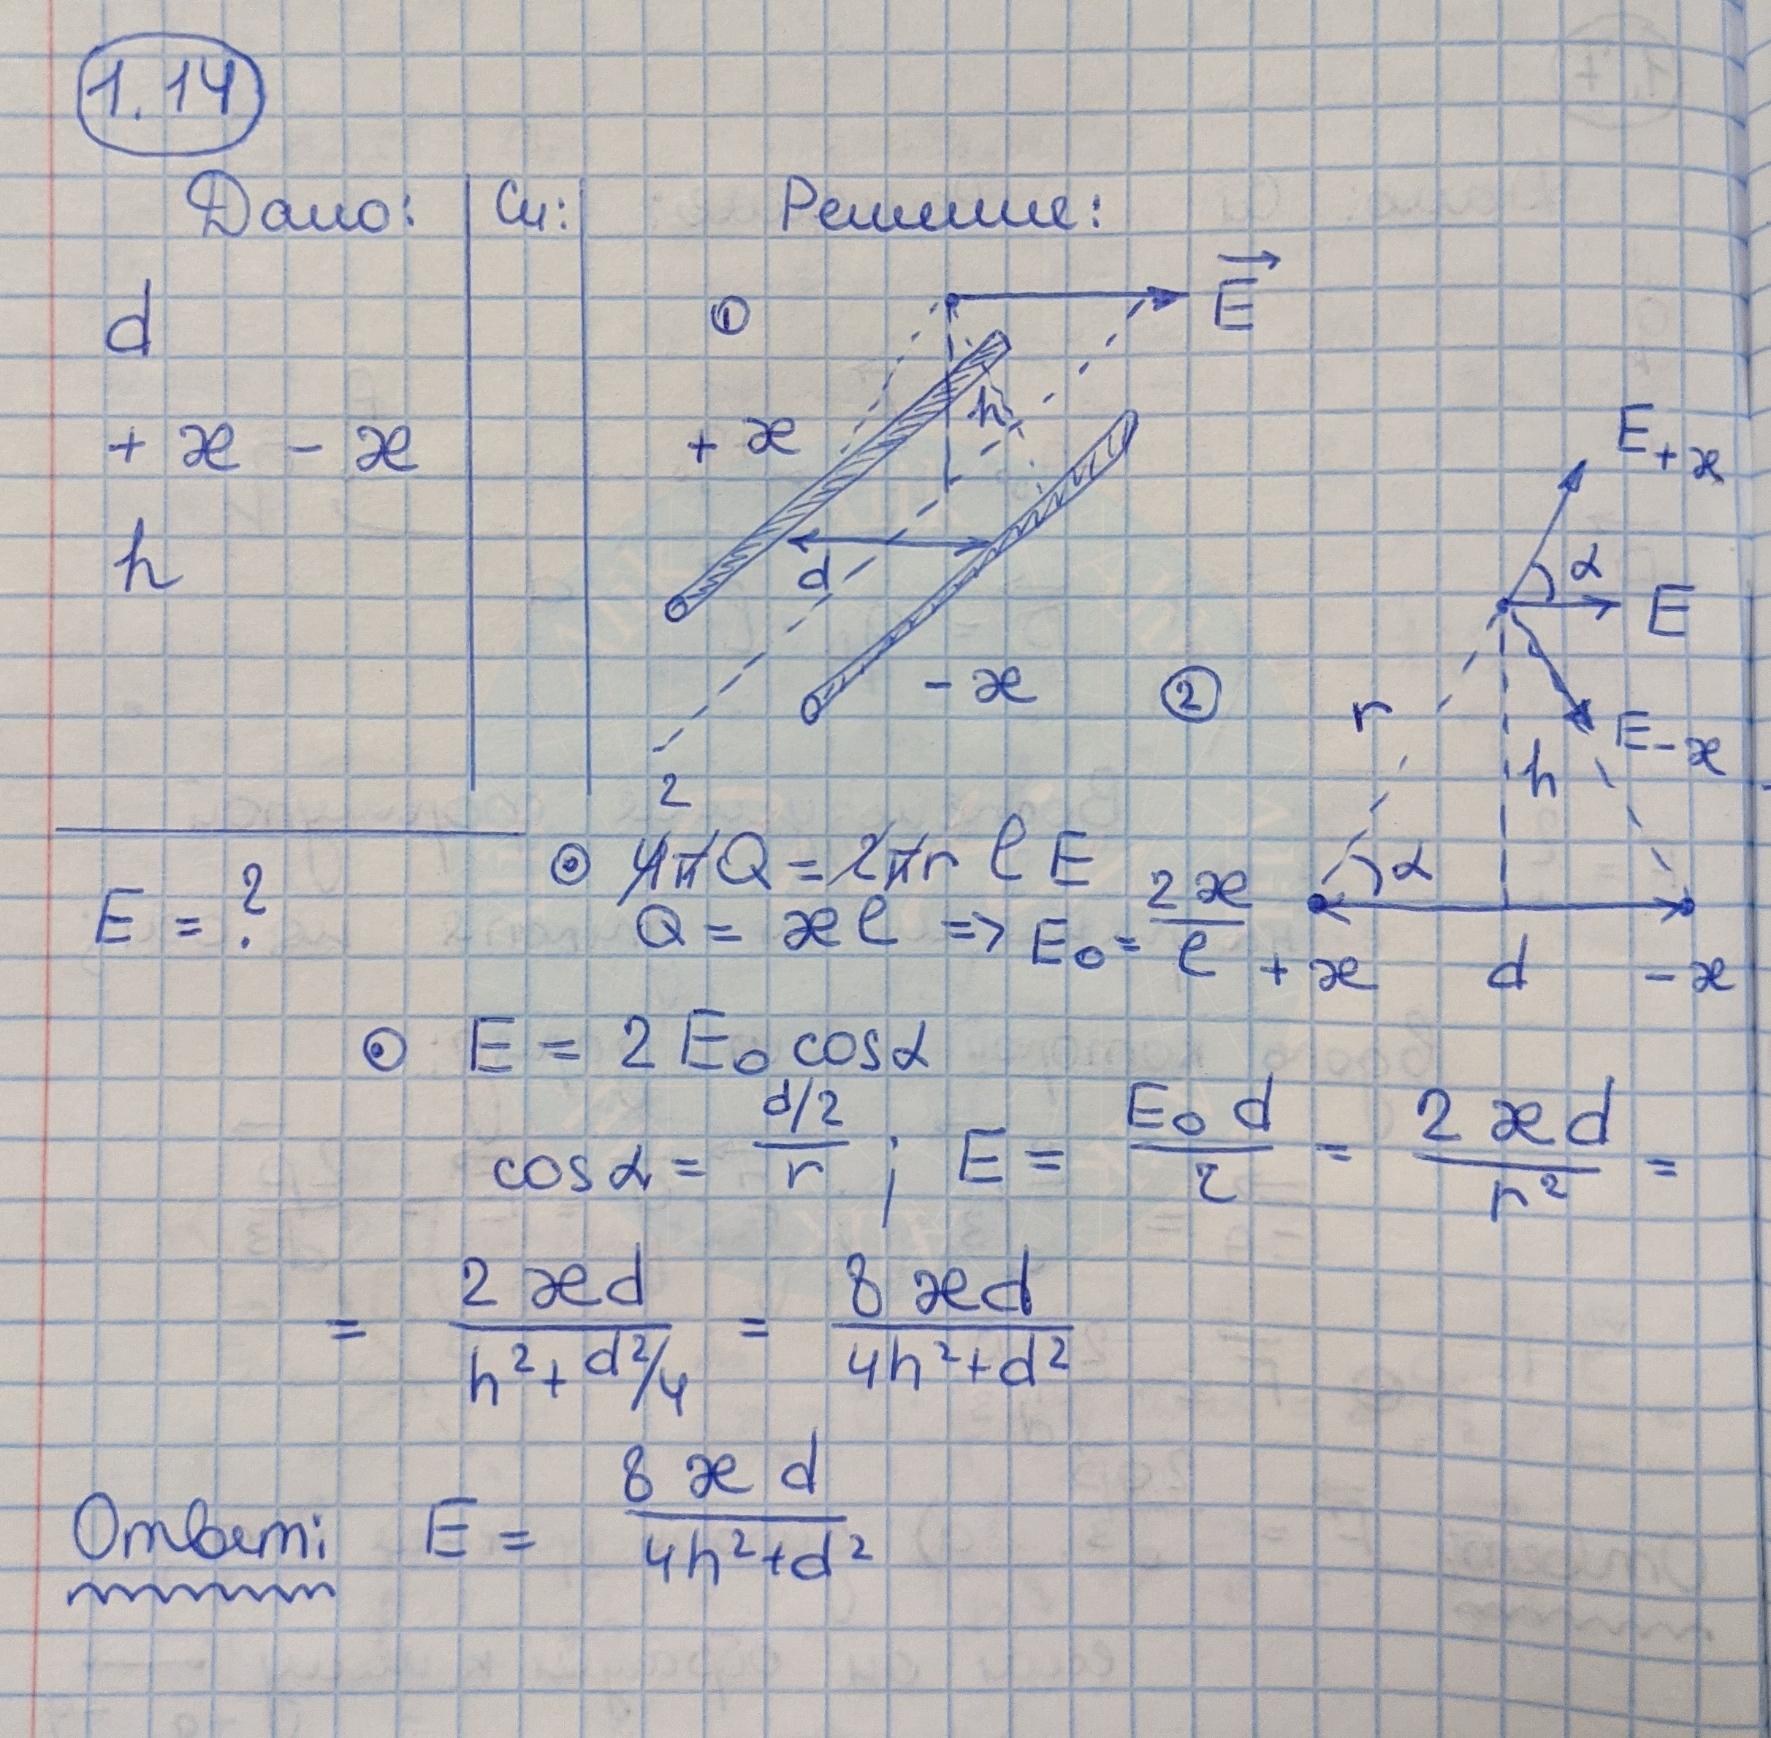 1.14
Дано: Си: Решение:
d
+ æ - æ
h
E = ?
① E⃗
+ æ
h
d
- æ
②
E+æ
α
E
E-æ
r
h
α
+ æ d - æ
2
⊙ 4πQ = 2πr l E
Q = æl => E₀ = 2æ/l
⊙ E = 2 E₀ cosα
cosα = (d/2)/r ; E = E₀ d/r = 2 æd/r² =
= 2 æd/(h² + d²/4) = 8 æd/(4h² + d²)
Ответ: E = 8 æ d/(4h² + d²)